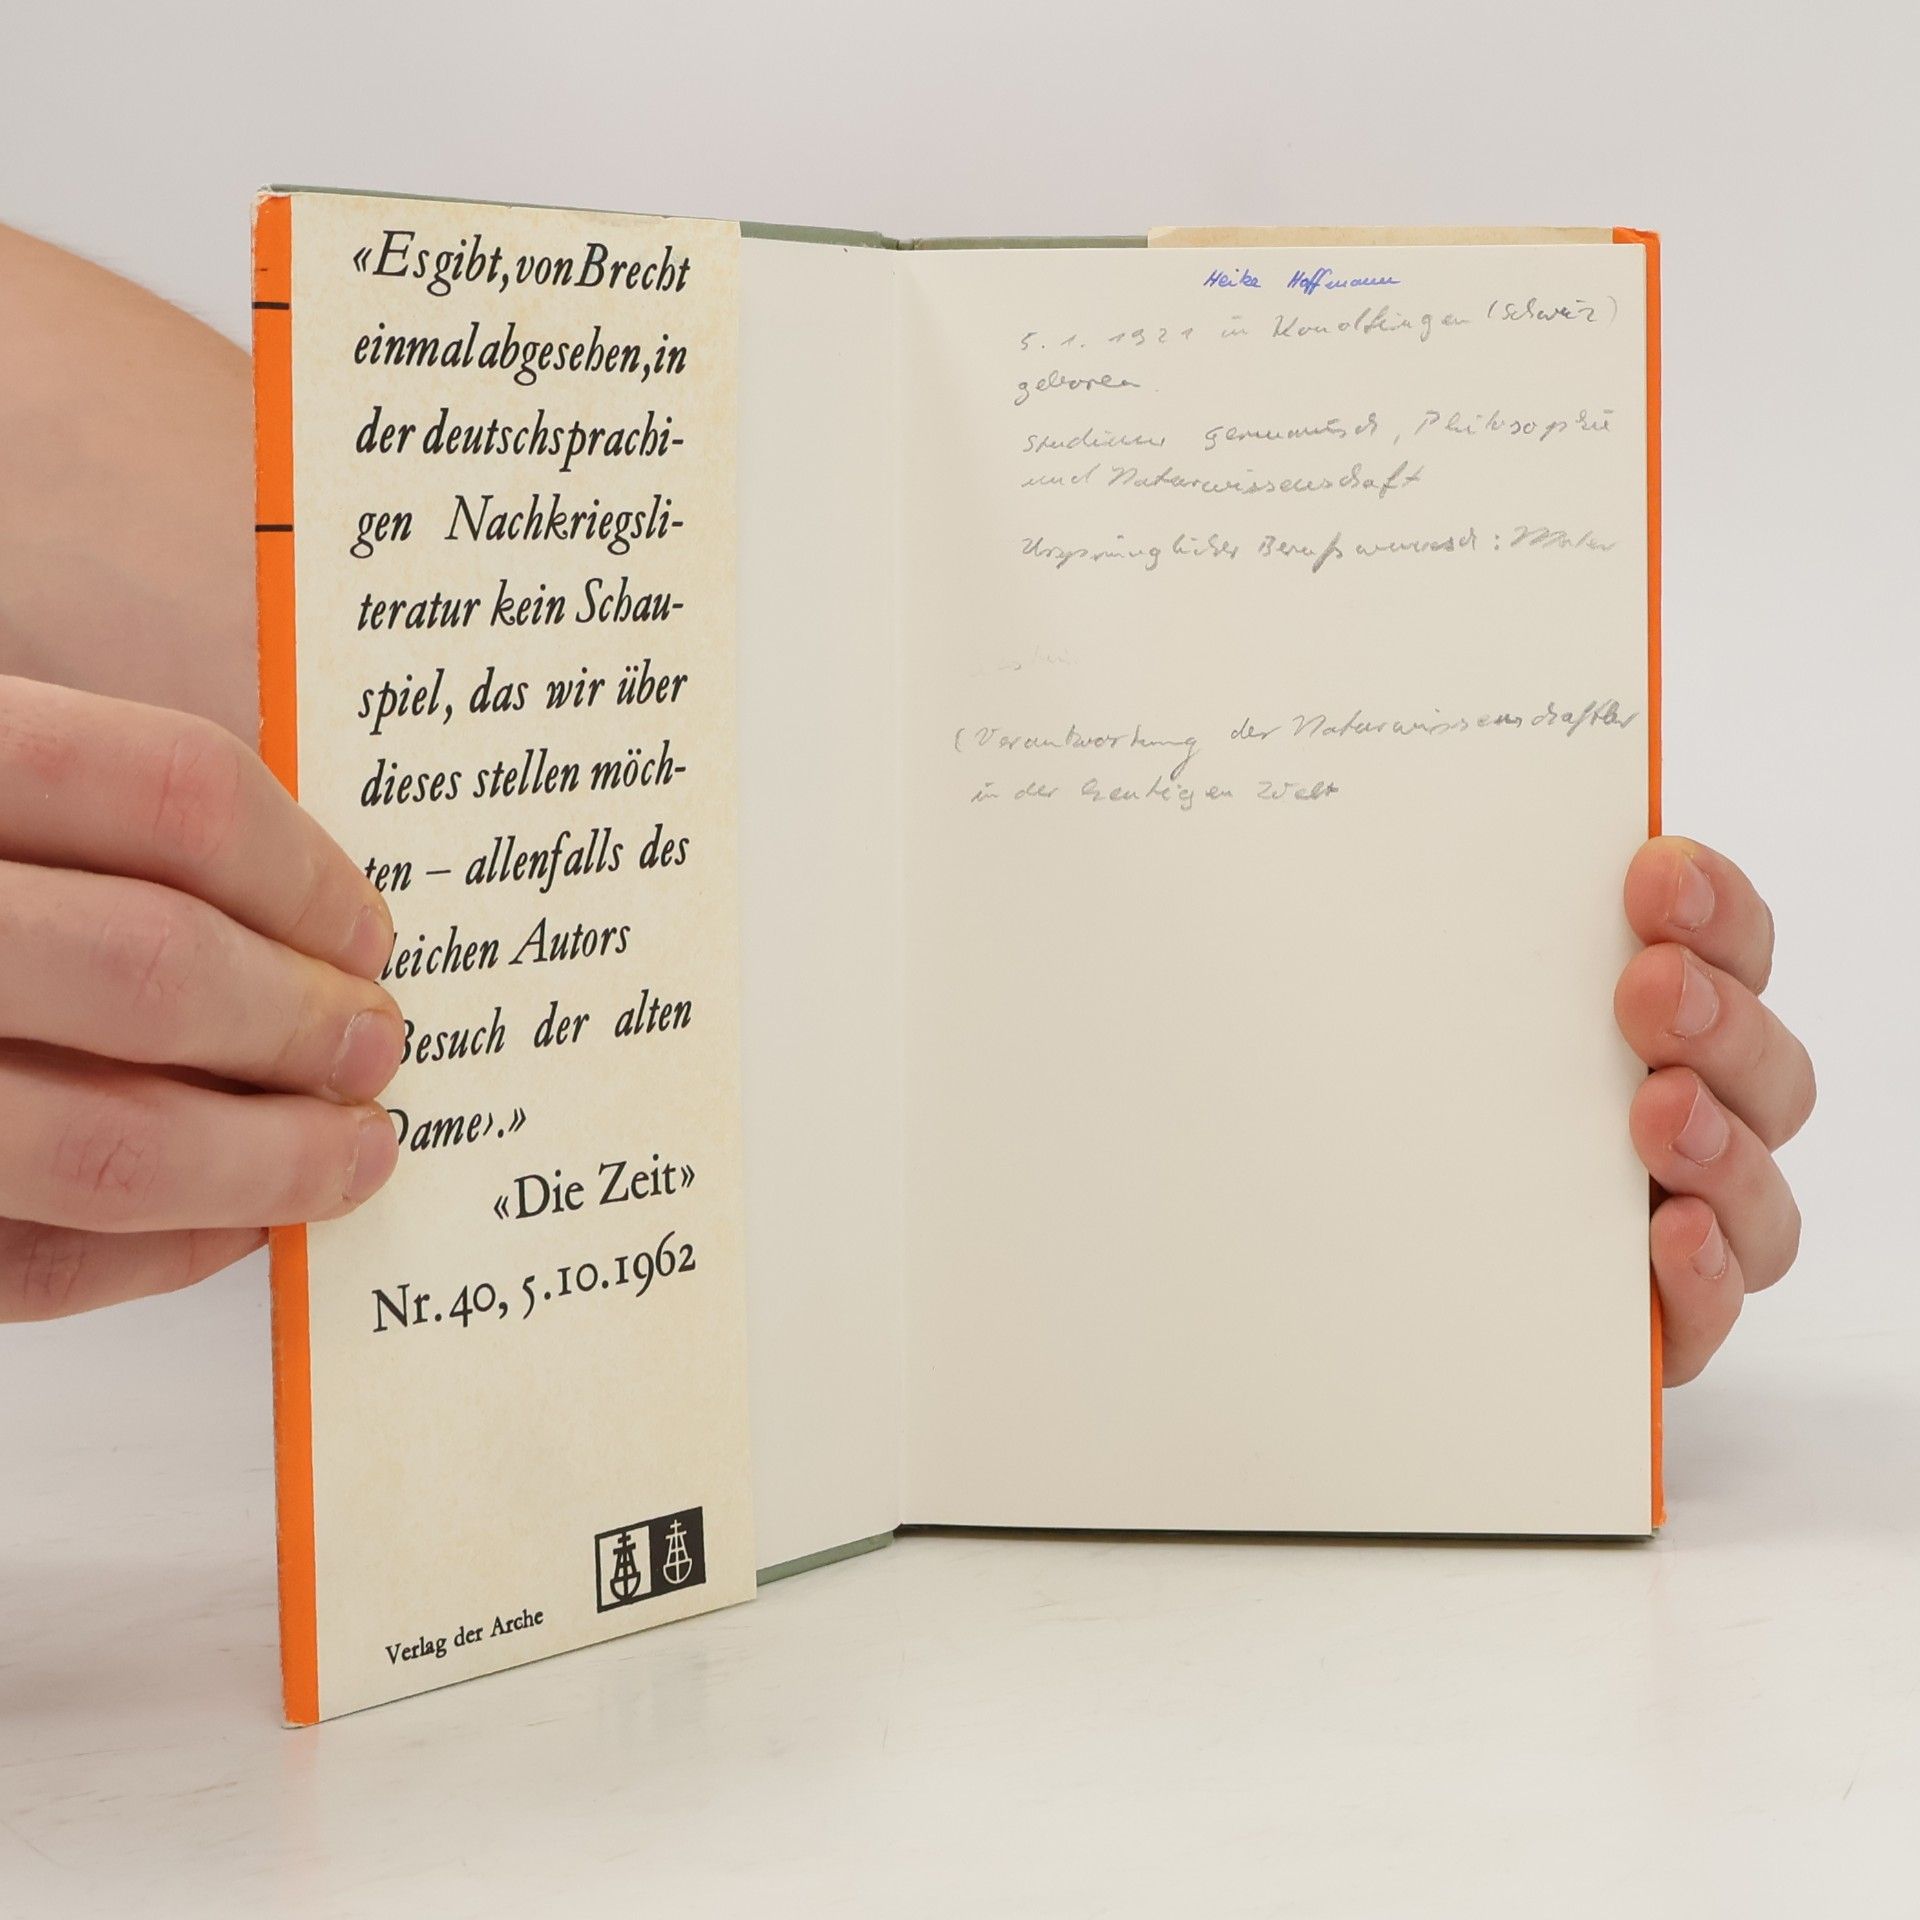 «Es gibt, von Brecht
einmal abgesehen, in
der deutschsprachi-
gen Nachkriegsli-
teratur kein Schau-
spiel, das wir über
dieses stellen möch-
ten – allenfalls des
leichen Autors
Besuch der alten
Dame›.»
«Die Zeit»
Nr. 40, 5.10.1962
Verlag der Arche
Heike Hoffmann
5. 1. 1921 in Konolfingen (Schweiz)
geboren
Studium germanisch, Philosophie
und Naturwissenschaft
Ursprünglicher Berufswunsch: Maler
(Verantwortung der Naturwissenschaftler
in der heutigen Welt